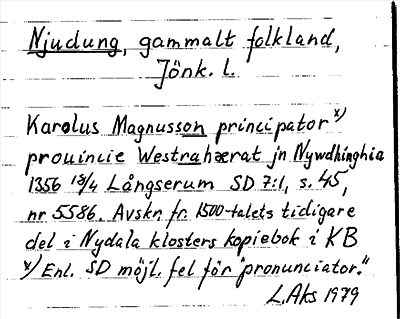 Njudung, gammalt folkland,
Jönk. l.
Karolus Magnusson principator x)
prouincie Westrahærat jn Nywdhinghia
1356 18/4 Långserum SD 7:1, s. 45,
nr 5586. Avskr. fr. 1500-talets tidigare
del i Nydala klosters kopiebok i KB
x) Enl. SD möjl. fel för "pronunciator."
L.Aks 1979